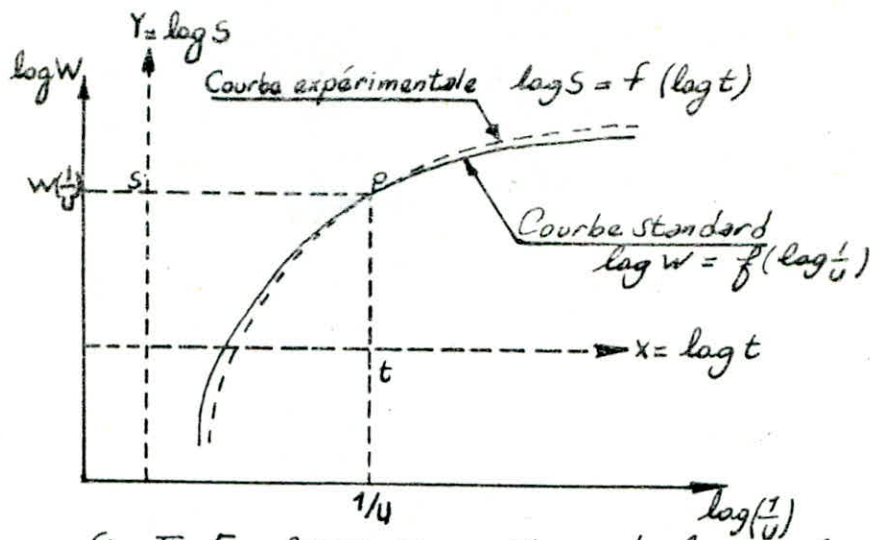 Y= log S
log W
Courbe expérimentale log S = f (log t)
W(1/u)
S
P
Courbe standard
log W = f(log 1/u)
X= log t
t
1/u
log(1/u)